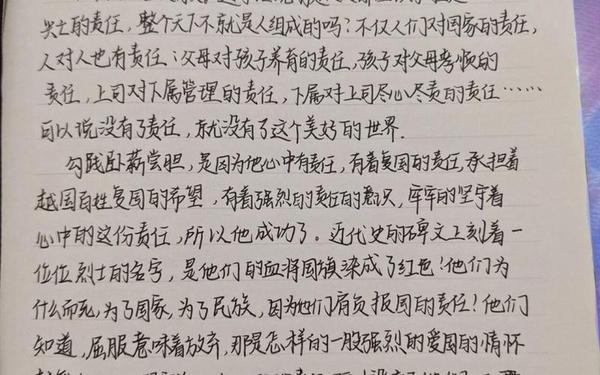 的责任，整个天下不就是人组成的吗？不仅人们对国家的责任，
人对人也有责任：父母对孩子养育的责任，孩子对父母孝顺的
责任，上司对下属管理的责任，下属对上司尽心尽责的责任……
可以说没有了责任，就没有了这个美好的世界.
勾践卧薪尝胆，是因为他心中有责任，有着复国的责任，承担着
越国百姓复国的希望，有着强烈的责任的意识，牢牢的坚守着
心中的这份责任，所以他成功了。近代史的碑文上刻着一
位位烈士的名字，是他们的血将国旗染成了红色！他们为
什么而死，为了国家，为了民族，因为他们肩负报国的责任！他们
知道，屈服意味着放弃，那是怎样的一股强烈的爱国的情怀